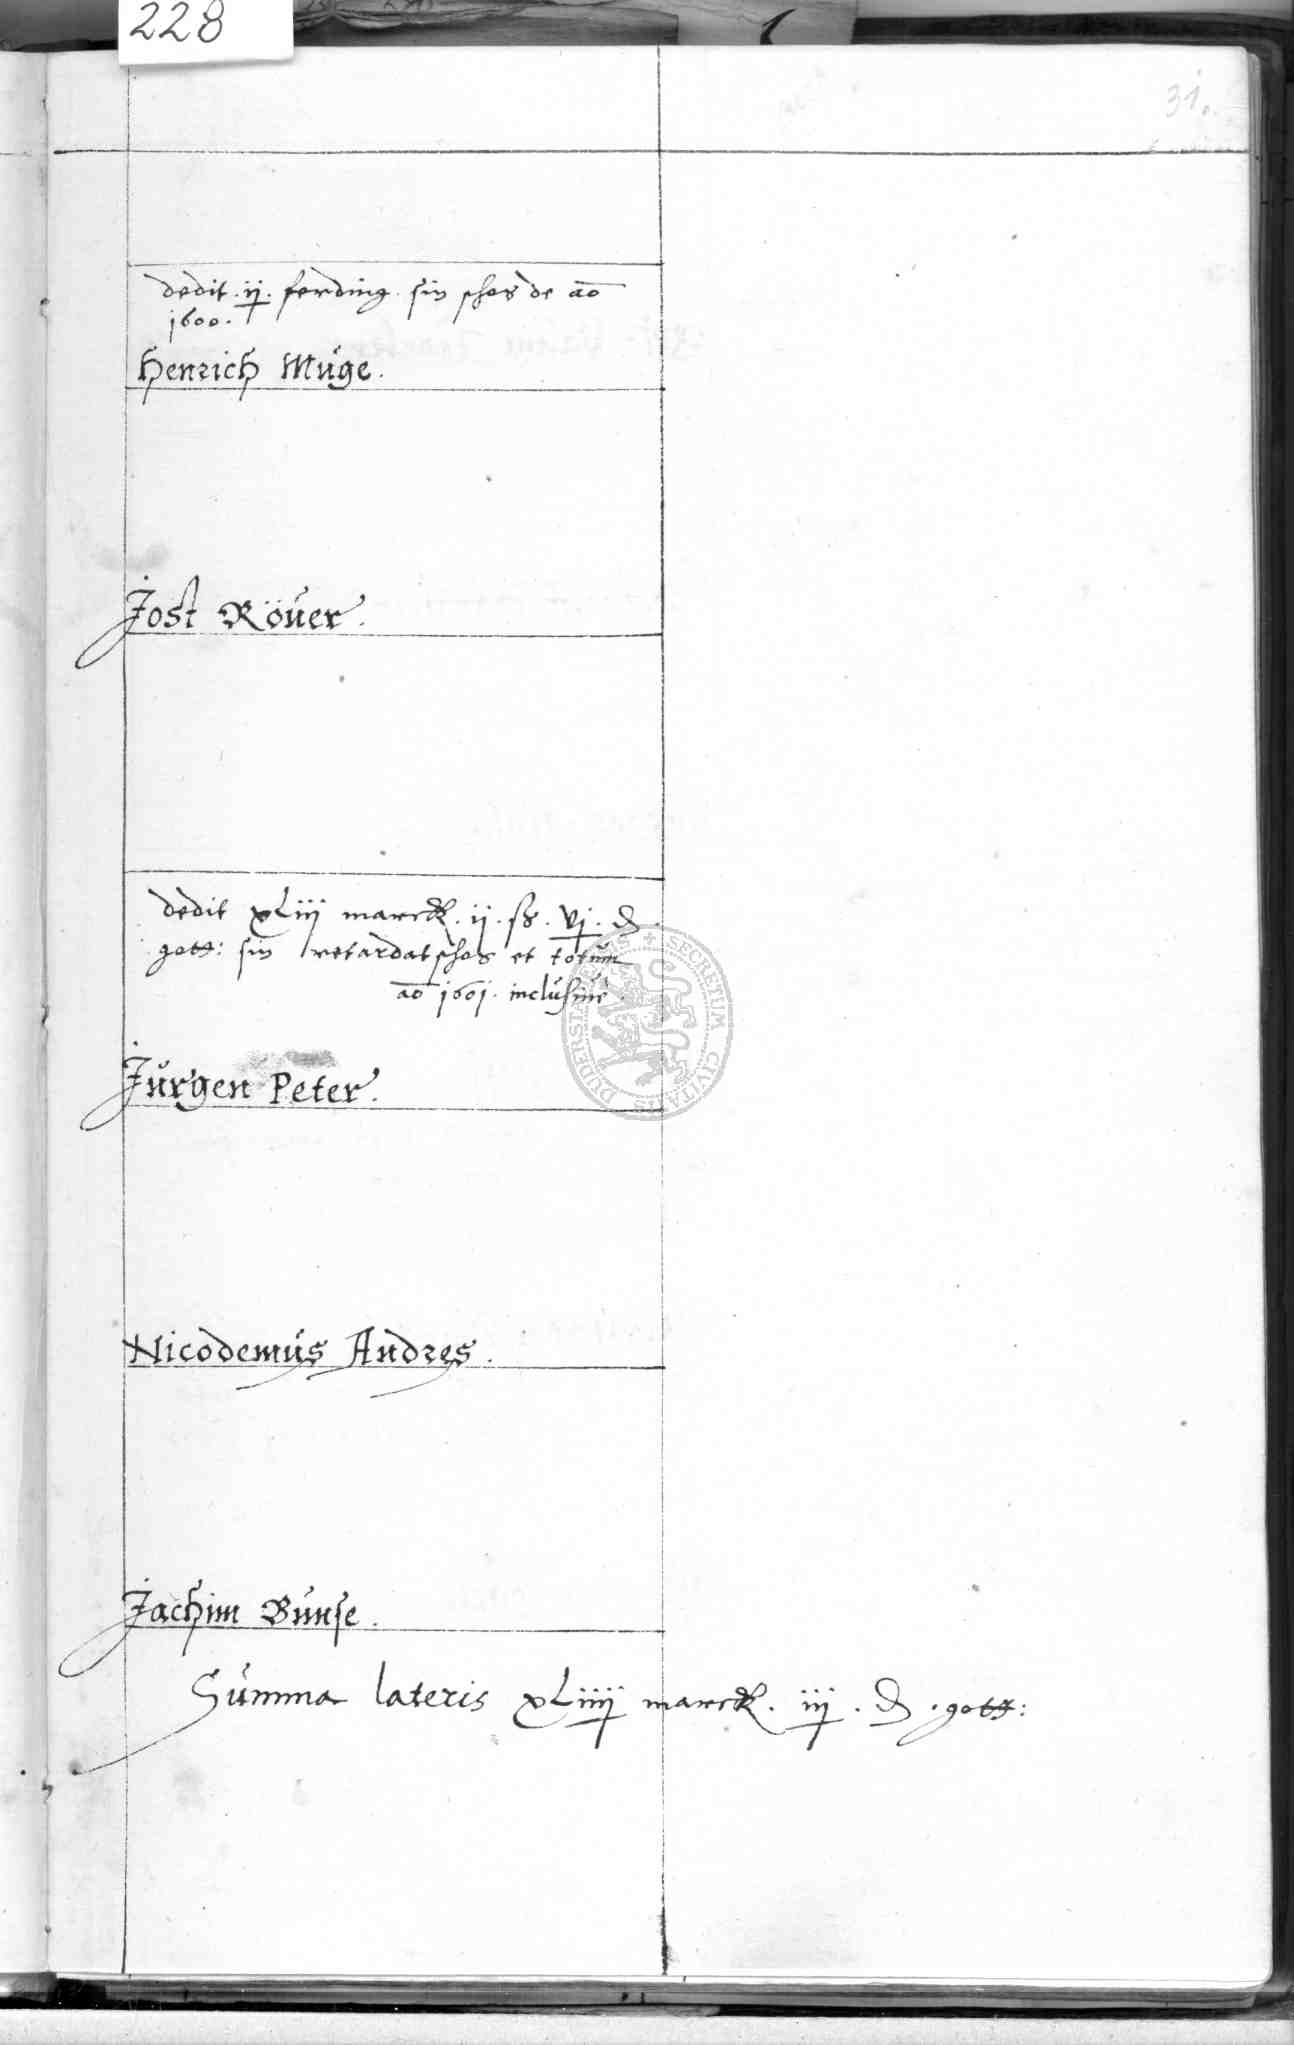 228
31.
dedit . ij . ferding . sin schos de ao
1600.
Henrich Müge.
Jost Röuer.
dedit xLiij marck . ij . ß . vj . d
gott: sin retardat schos et totum
ao 1601. inclusiue.
Jürgen Peter.
SECRETUM CIVITATIS DUDERSTADENSIS
Nicodemus Andres.
Jachim Bunse.
Summa lateris xLiiij marck . iij . d . gott: